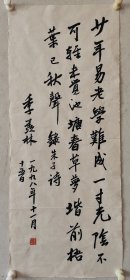 少年易老學難成一寸光陰不
可輕未覺池塘春草夢堦前梧
葉已秋聲 錄朱子詩
季羨林
一九九八年十一月
十五日